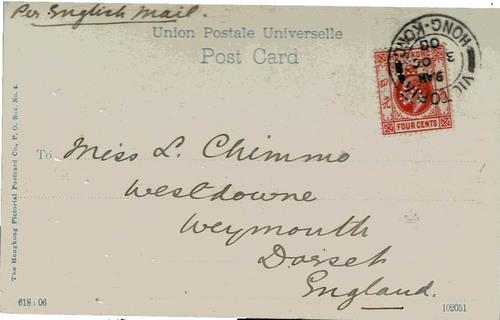 Per English Mail.
Union Postale Universelle
Post Card
VICTORIA
HONG-KONG
9 AM
3 OC
FOUR CENTS
To Miss L. Chimmo
Westdowne
Weymouth
Dorset
England.
The Hongkong Pictorial Postcard Co., P. O. Box, No. 4.
618 : 06
102051